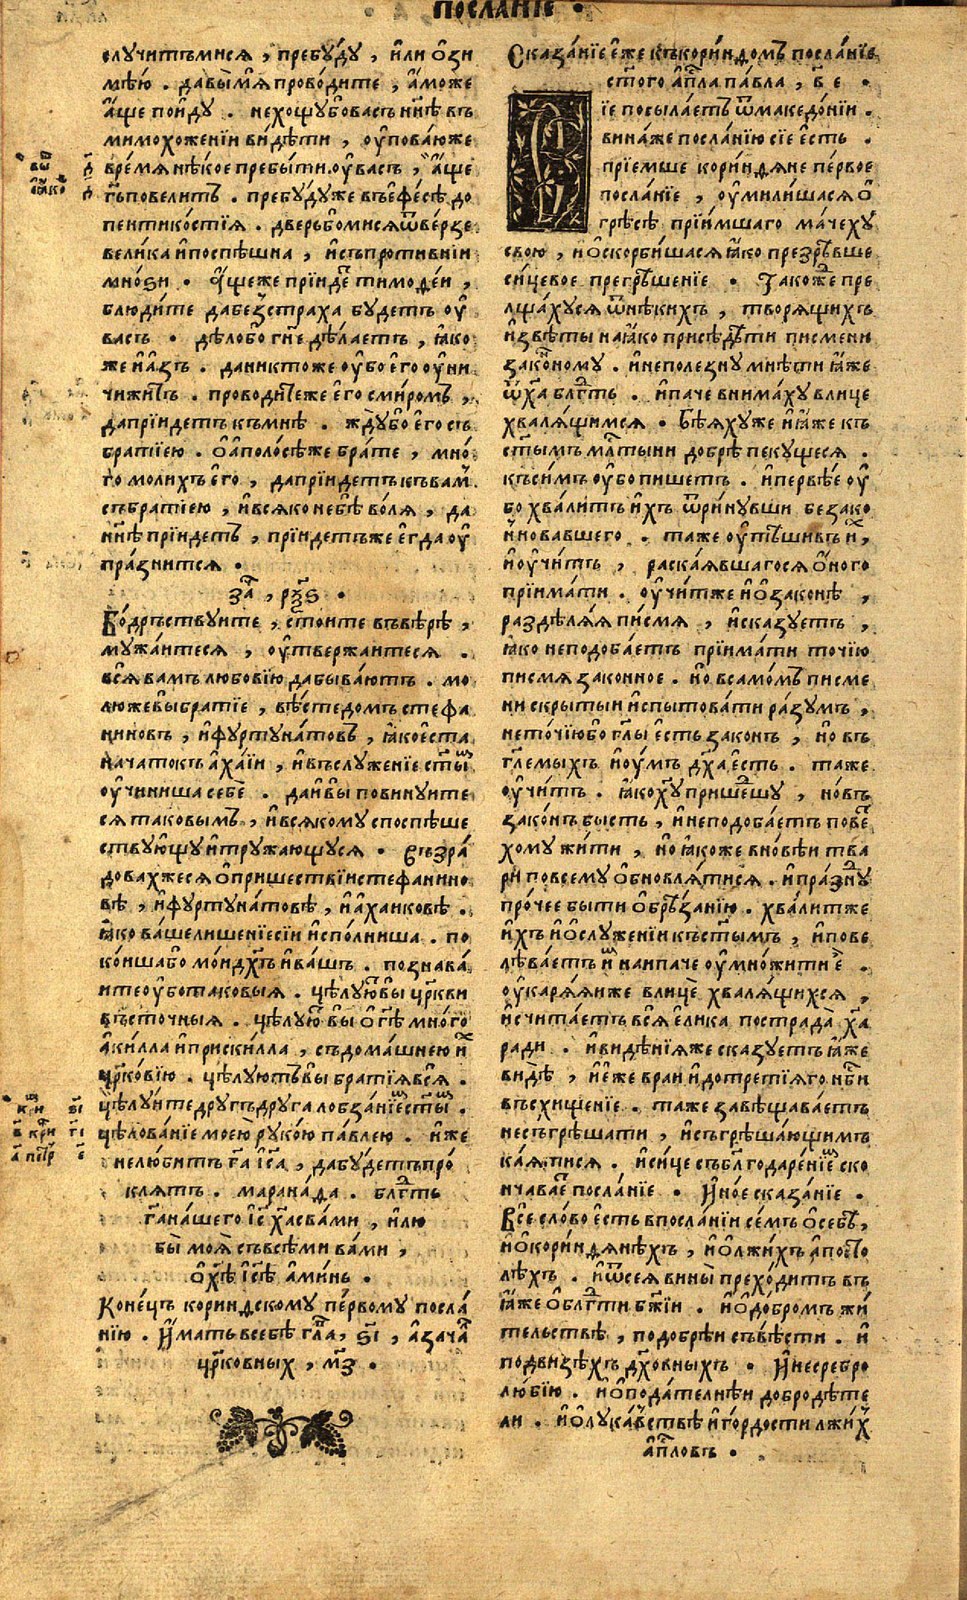 посла́нїе •
слꙋчитъмисѧ , пребꙋ́дꙋ , и҆лиѻ҆зи
мѣ́ю . давы̀мѧ̀проводите , а҆́може
а҆́ще пои҆дꙋ . нехощꙋбовасъ нн҃ѣ въ
мимохоженїи ви́дѣти , ѹ҆пова́юже
врѣмѧнѣ́кое пребы́ти ѹ҆ васъ , а҆́ще
гь҃повелитъ . пребꙋ́дꙋже въе҆фе́сѣ до
пентико́стїѧ . две́рьбомисѧѿве́рзе
велика и҆поспѣ́шна , и҆съпроти́внїи
мно́ѕи . а҆́щеже прїи́де тимоѳе́и ,
блюди́те дабезстраха бꙋ́детъ ѹ҆
васъ . дѣ́лобо гн҃е дѣ́лаетъ , ꙗ҆ко
же и҆а҆́зъ . даникто́же ѹ҆бо е҆го̀ ѹ҆ни
чижи́тъ . проводи́теже е҆го̀ сми́ромъ ,
дапрїи́детъ къмнѣ̀ . ждꙋ́бо е҆го̀ съ
бра́тїею . ѻ҆а҆поло́сѣже бра́те , мно́
го молихъ е҆го̀ , дапрїи́детъ къва́м
събра́тїею , и҆всѧ́ко небѣ̀ во́лѧ , да
нн҃ѣ прїи́детъ , прїи́детъже е҆гда ѹ҆
пра́знитсѧ •
за҃ , рѯ҃ѕ •
Бо́дръствꙋите , сто́ите въвѣ́рѣ ,
мꙋжа́итесѧ , ѹ҆твержа́итесѧ .
всѧ̀ ва́мъ любо́вїю дабыва́ютъ . мо
лю́жевы̀ бра́тїе , вѣ́сте до́мъ стефа
ни́новъ , и҆фꙋртꙋна́товъ , ꙗ҆́кое҆́ста
нача́токъ а҆ха́їи , и҆въслꙋже́нїе ст҃ы́
ѹ҆чиниша себѐ . даи҆вы̀ повинꙋ́ите
сѧ таковы́мъ , и҆всѧ́комꙋ споспѣ́ше
ствꙋ́ющꙋ и҆трꙋжа́ющꙋсѧ . Възра́
довахжесѧ ѻ҆прише́ствїи стефанино
вѣ , и҆фꙋртꙋна́товѣ , и҆а҆хаи́ковѣ .
ꙗ҆́ко ва́ше лише́нїе сїи и҆спо́лниша . по
ко́ишабо мо́и дх҃ъ и҆ва́шъ . познава́
ите ѹ҆ботаковы́ѧ . цѣлꙋ́ювы̀ цр҃кви
въсто́чныѧ . цѣлꙋ́ю вы̀ ѻ҆ гд҃ѣ мно́го
а҆ки́лла и҆приски́лла , съдома́шнею и҆х
цр҃ковїю . цѣлꙋ́ютъ вы̀ бра́тїѧвсѧ̀ .
цѣлꙋ́ите дрꙋ́гъдрꙋ́га лобза́нїе ст҃ы .
цѣлова́нїе мое́ю рꙋко́ю па́влею . и҆́же
нелю́битъ га҃ і҆с҃а , дабꙋ́детъ про́
клѧтъ . марана́ѳа . блг҃ть
га҃на́шего і҆с҃ ха҃ съва́ми , и҆лю
бы̀ моѧ̀ съвсѣ́ми ва́ми ,
ѻ҆ хѣ҃ і҆с҃ѣ а҆ми́нь .
Коне́цъ кори́нѳскомꙋ пе́рвомꙋ посла́
нїю . И҆́мать въсебѣ̀ гла҃ , ѕ҃і , а҆зача́
цр҃ковных , м҃з .
Сказа́нїе е҆́же къкори́нѳомъ посла́нїе
ст҃ого а҆пл҃а па́вла , в҃ е .
їе посыла́етъ ѿмакедо́нїи .
вина́же посла́нїю сїе е҆́сть .
прїе́мше кори́нѳѧне пе́рвое
посла́нїе , ѹ҆мили́шасѧ ѻ҆
грѣ́сѣ прїи́мшаго ма́чехꙋ
свою , и҆ѻ҆скорби́шасѧ ꙗ҆́ко презрѣ́вше
си́цевое прегрѣше́нїе . Та́коже пре
лща́хꙋсѧ ѿнѣ́кихъ , творѧ́щихъ
и҆звѣ́ты наꙗ҆́ко присѣдѣ́ти пи́смени
зако́нномꙋ . и҆неполе́знꙋ мнѣ́ти ꙗ҆́же
ѿха҃ блг҃ть . и҆па́че внима́хꙋ влице
хвалѧ́щимсѧ . Бѣѧ́хꙋже и҆ꙗ҆́же къ
ст҃ымъ мл҃тыни добрѣ̀ пекꙋ́щесѧ .
къси́мъ ѹ҆́бо пи́шетъ . и҆первѣ́е ѹ҆
бо хва́литъ и҆́хъ ѿри́нꙋвши безако
нновавшего . та́же ѹ҆тѣ́шивъ и҆х ,
и҆ѹ҆чи́тъ , раска́ѧвшагосѧ ѻ҆́ного
прїима́ти . ѹ҆чи́тже и҆ѻ҆зако́нѣ ,
раздѣлѧ́ѧ пи́смѧ , и҆ска́зꙋетъ ,
ꙗ҆́ко неподоба́етъ прїима́ти то́чїю
пи́смѧ зако́нное . но всамо́мъ пи́сме
ни скры́тыи и҆спытова́ти ра́зꙋмъ ,
нето́чїюбо гл҃ы е҆́сть зако́нъ , но въ
гл҃емыхъ и҆ ѹ҆́мъ дх҃а е҆́сть . та́же
ѹ҆чи́тъ . ꙗ҆́ко хꙋ҃ прише́дшꙋ , но́въ
зако́нъ бы́сть , и҆неподоба́етъ пове
хомꙋ жи́ти , но ꙗ҆́коже вно́вѣи тва
ри повсемꙋ̀ ѻ҆бновлѧ́тисѧ . и҆пра́знꙋ
про́чее бы́ти ѻ҆брѣ́занїю . хва́литже
и҆́хъ и҆ѻ҆слꙋже́нїи къст҃ымъ , и҆пове
лѣва́етъ и҆м наипа́че ѹ҆мно́жити е҆̀ .
ѹ҆карѧ́ѧиже влицѐ хвалѧ́щихсѧ ,
и҆счита́етъ всѧ̀ е҆ли́ка пострада̀ ха҃
ра́ди . и҆видѣ́нїѧже ска́зꙋетъ ꙗ҆́же
ви́дѣ , и҆е҆́же вра́и и҆дотре́тїѧго нб҃си
въсхище́нїе . та́же завѣщава́етъ
несъгрѣша́ти , и҆съгрѣша́ющимъ
ка́ѧтисѧ . и҆си́це съблг҃одаре́нїем ско
нчава́е посла́нїе . И҆но́е сказа́нїе .
Все сло́во е҆́сть впосла́нїи се́мъ ѻ҆себѣ̀ ,
и҆ѻ҆кори́нѳѧнѣхъ , и҆ѻ҆лжи́хъ а҆посто
лѣхъ . и҆ѿсеѧ̀ вины̀ прехо́дитъ въ
ꙗ҆́же ѻ҆блг҃ти бж҃їи . и҆ѻ҆до́бромъ жи́
тельствѣ , подо́брѣи съвѣ́сти . и҆
подвиѕѣхъ дх҃о́вныхъ . И҆несребро
лю́бїю . и҆ѻ҆пода́телнѣи добродѣ́те
ли . и҆ѻ҆лꙋка́вствѣ и҆го́рдости лжи́х
а҆пл҃овъ .